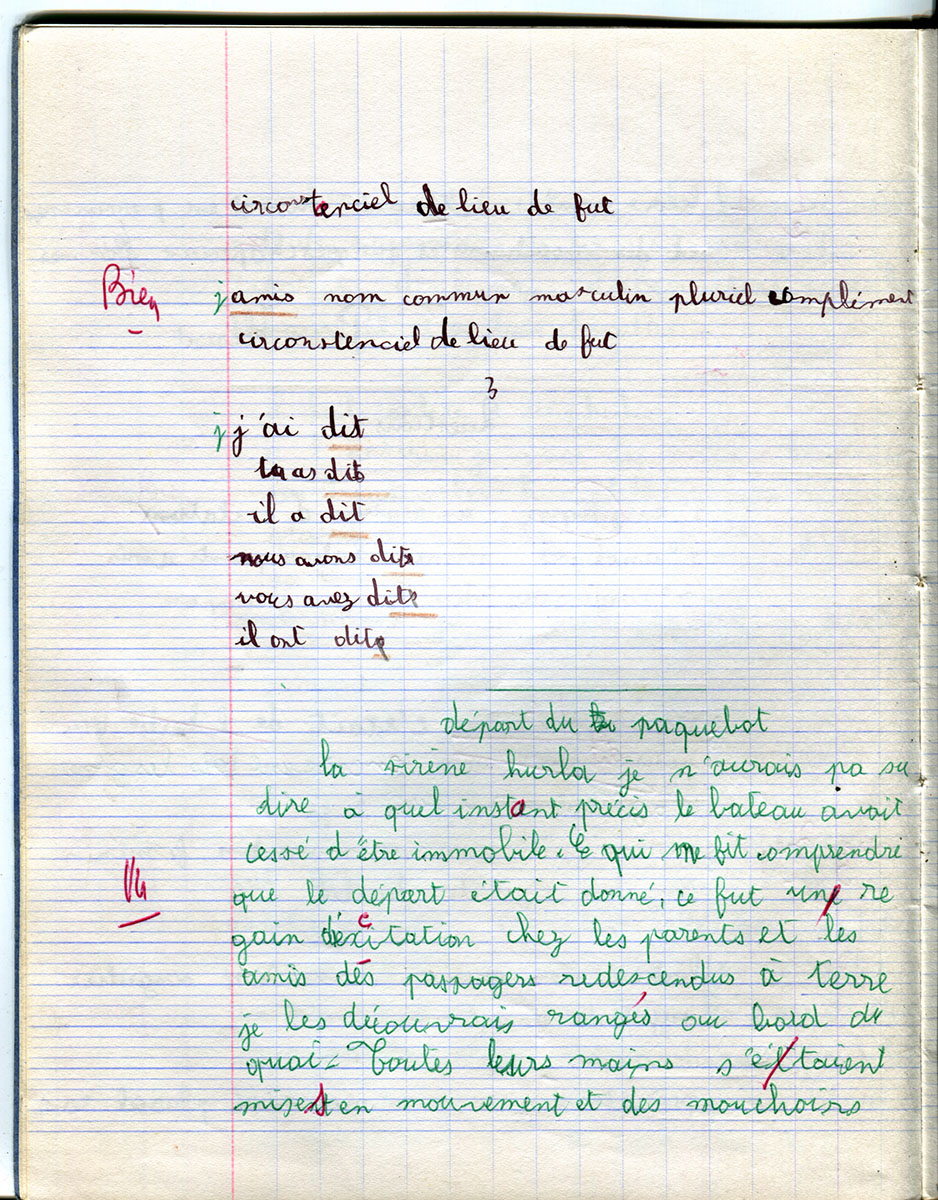 circonstenciel de lieu de fut
Bien
j amis nom commun masculin pluriel complément
circonstenciel de lieu de fut
3
j j'ai dit
tu as dit
il a dit
nous avons dits
vous avez dits
il ont dits
départ du paquebot
la sirène hurla je n'aurais pa su
dire à quel instant précis le bateau avait
cessé d'être immobile. Ce qui me fit comprendre
Vu
que le départ était donné, ce fut une re
gain déxcitation chez les parents et les
amis dés passagers redescendus à terre
je les découvrais rangés au bord du
quai. Toutes leurs mains s'éttaient
mises en mouvement et des mouchoirs